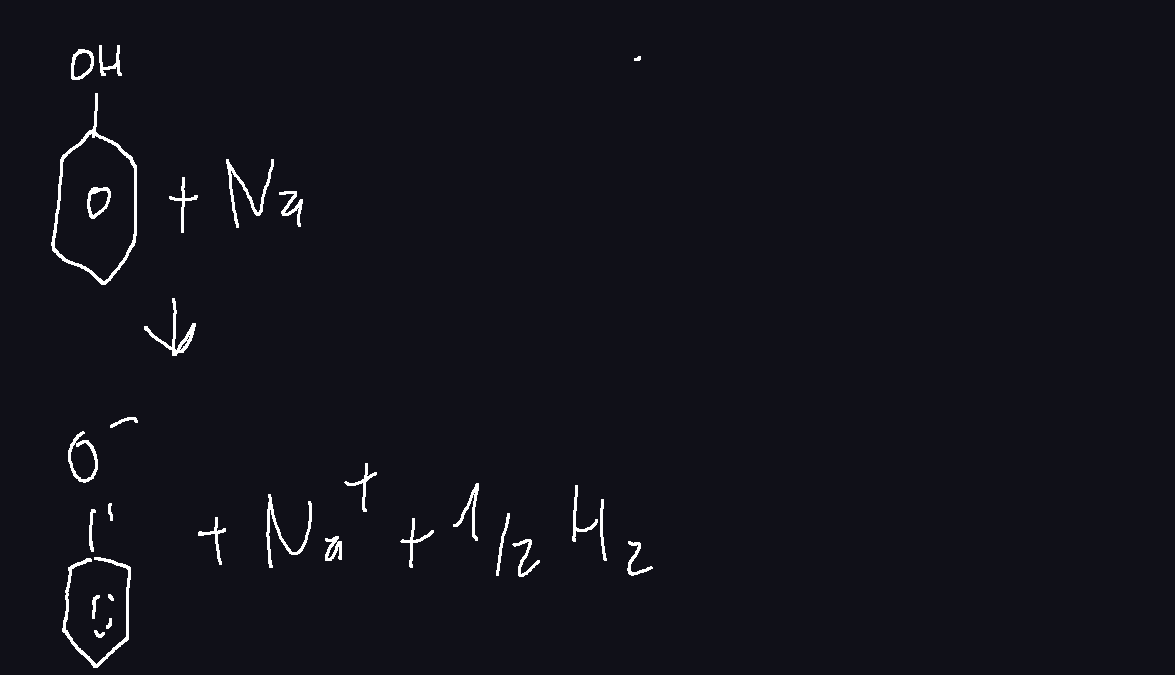 OH
+ Na
O⁻
+ Na⁺ + 1/2 H₂